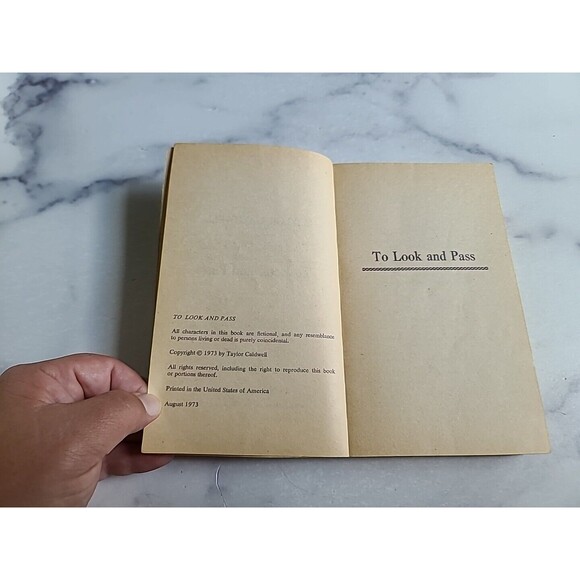 TO LOOK AND PASS
All characters in this book are fictional, and any resemblance
to persons living or dead is purely coincidental.
Copyright © 1973 by Taylor Caldwell
All rights reserved, including the right to reproduce this book
or portions thereof.
Printed in the United States of America
August 1973
To Look and Pass